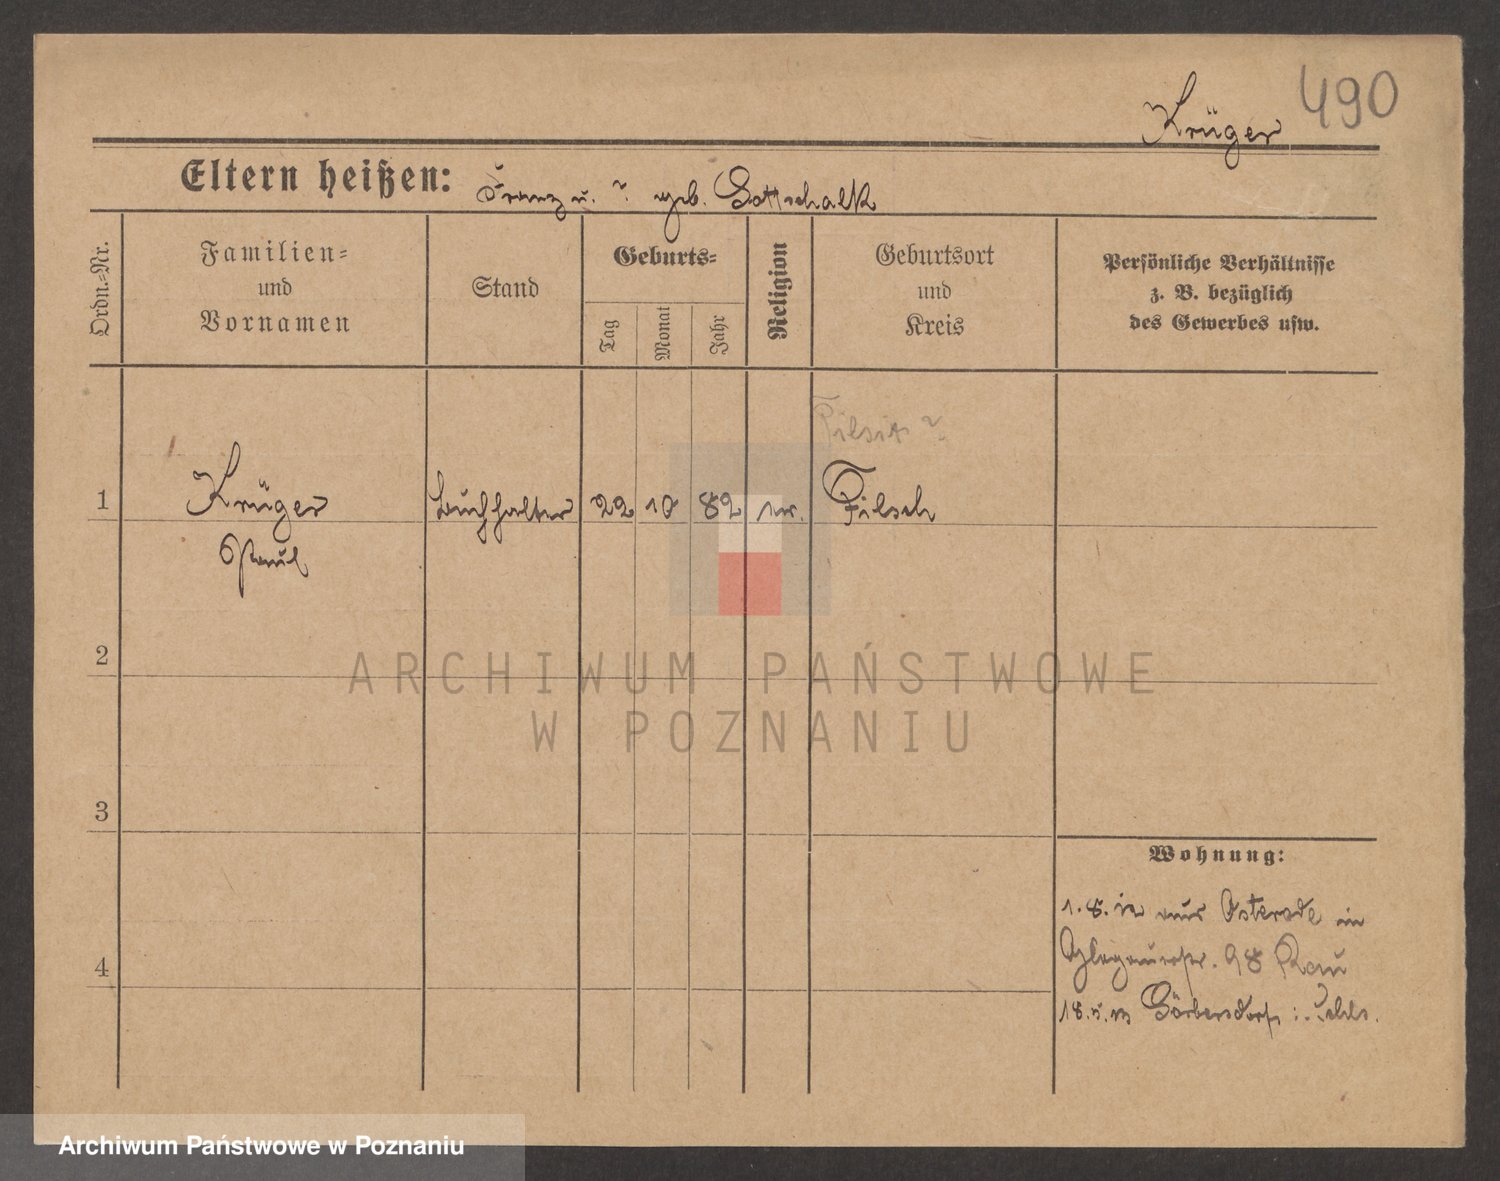 490
Krüger
Eltern heißen: Franz u. ? geb. Gottschalk
Ordn.-Nr.
Familien-
und
Vornamen
Stand
Geburts-
Tag
Monat
Jahr
Religion
Geburtsort
und
Kreis
Persönliche Verhältnisse
z. B. bezüglich
des Gewerbes usw.
Tilsit ?
1 Krüger Buchhalter 22 10 82 Filsch
Paul
2
3
4
Wohnung:
1.8.12 aus Osterode in
Glogauerstr. 98 Rau
18.5.13 Görbersdorf i. Schls.
ARCHIWUM PAŃSTWOWE
W POZNANIU
Archiwum Państwowe w Poznaniu